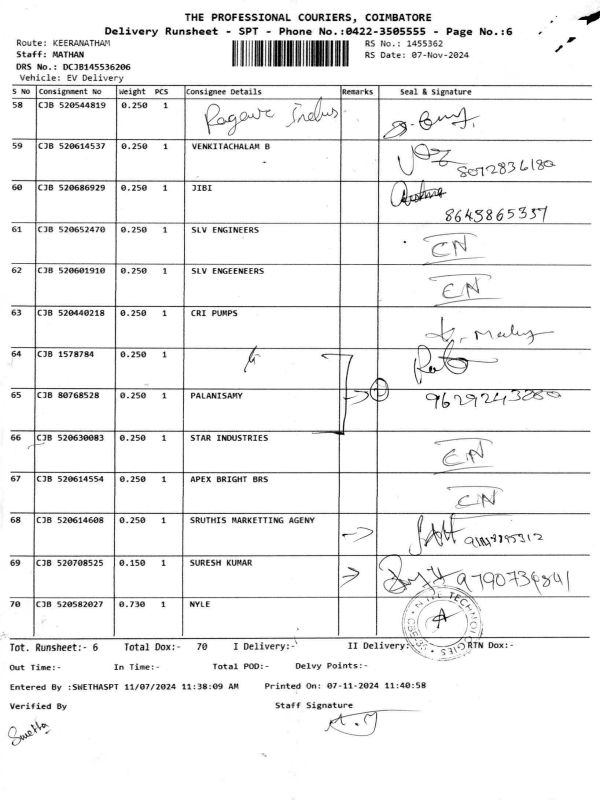 THE PROFESSIONAL COURIERS, COIMBATORE
Delivery Runsheet - SPT - Phone No.:0422-3505555 - Page No.:6
Route: KEERANATHAM RS No.: 1455362
Staff: MATHAN RS Date: 07-Nov-2024
DRS No.: DCJB145536206
Vehicle: EV Delivery
S No Consignment No Weight PCS Consignee Details Remarks Seal & Signature
58 CJB 520544819 0.250 1
59 CJB 520614537 0.250 1 VENKITACHALAM B
8072836180
60 CJB 520686929 0.250 1 JIBI
8645865337
61 CJB 520652470 0.250 1 SLV ENGINEERS CN
62 CJB 520601910 0.250 1 SLV ENGEENEERS CN
63 CJB 520440218 0.250 1 CRI PUMPS
64 CJB 1578784 0.250 1
65 CJB 80768528 0.250 1 PALANISAMY 9629243280
66 CJB 520630083 0.250 1 STAR INDUSTRIES CN
67 CJB 520614554 0.250 1 APEX BRIGHT BRS CN
68 CJB 520614608 0.250 1 SRUTHIS MARKETTING AGENY
69 CJB 520708525 0.150 1 SURESH KUMAR 9790736841
70 CJB 520582027 0.730 1 NYLE
Tot. Runsheet:- 6 Total Dox:- 70 I Delivery:- II Delivery:- RTN Dox:-
Out Time:- In Time:- Total POD:- Delvy Points:-
Entered By :SWETHASPT 11/07/2024 11:38:09 AM Printed On: 07-11-2024 11:40:58
Verified By Staff Signature
Swetha